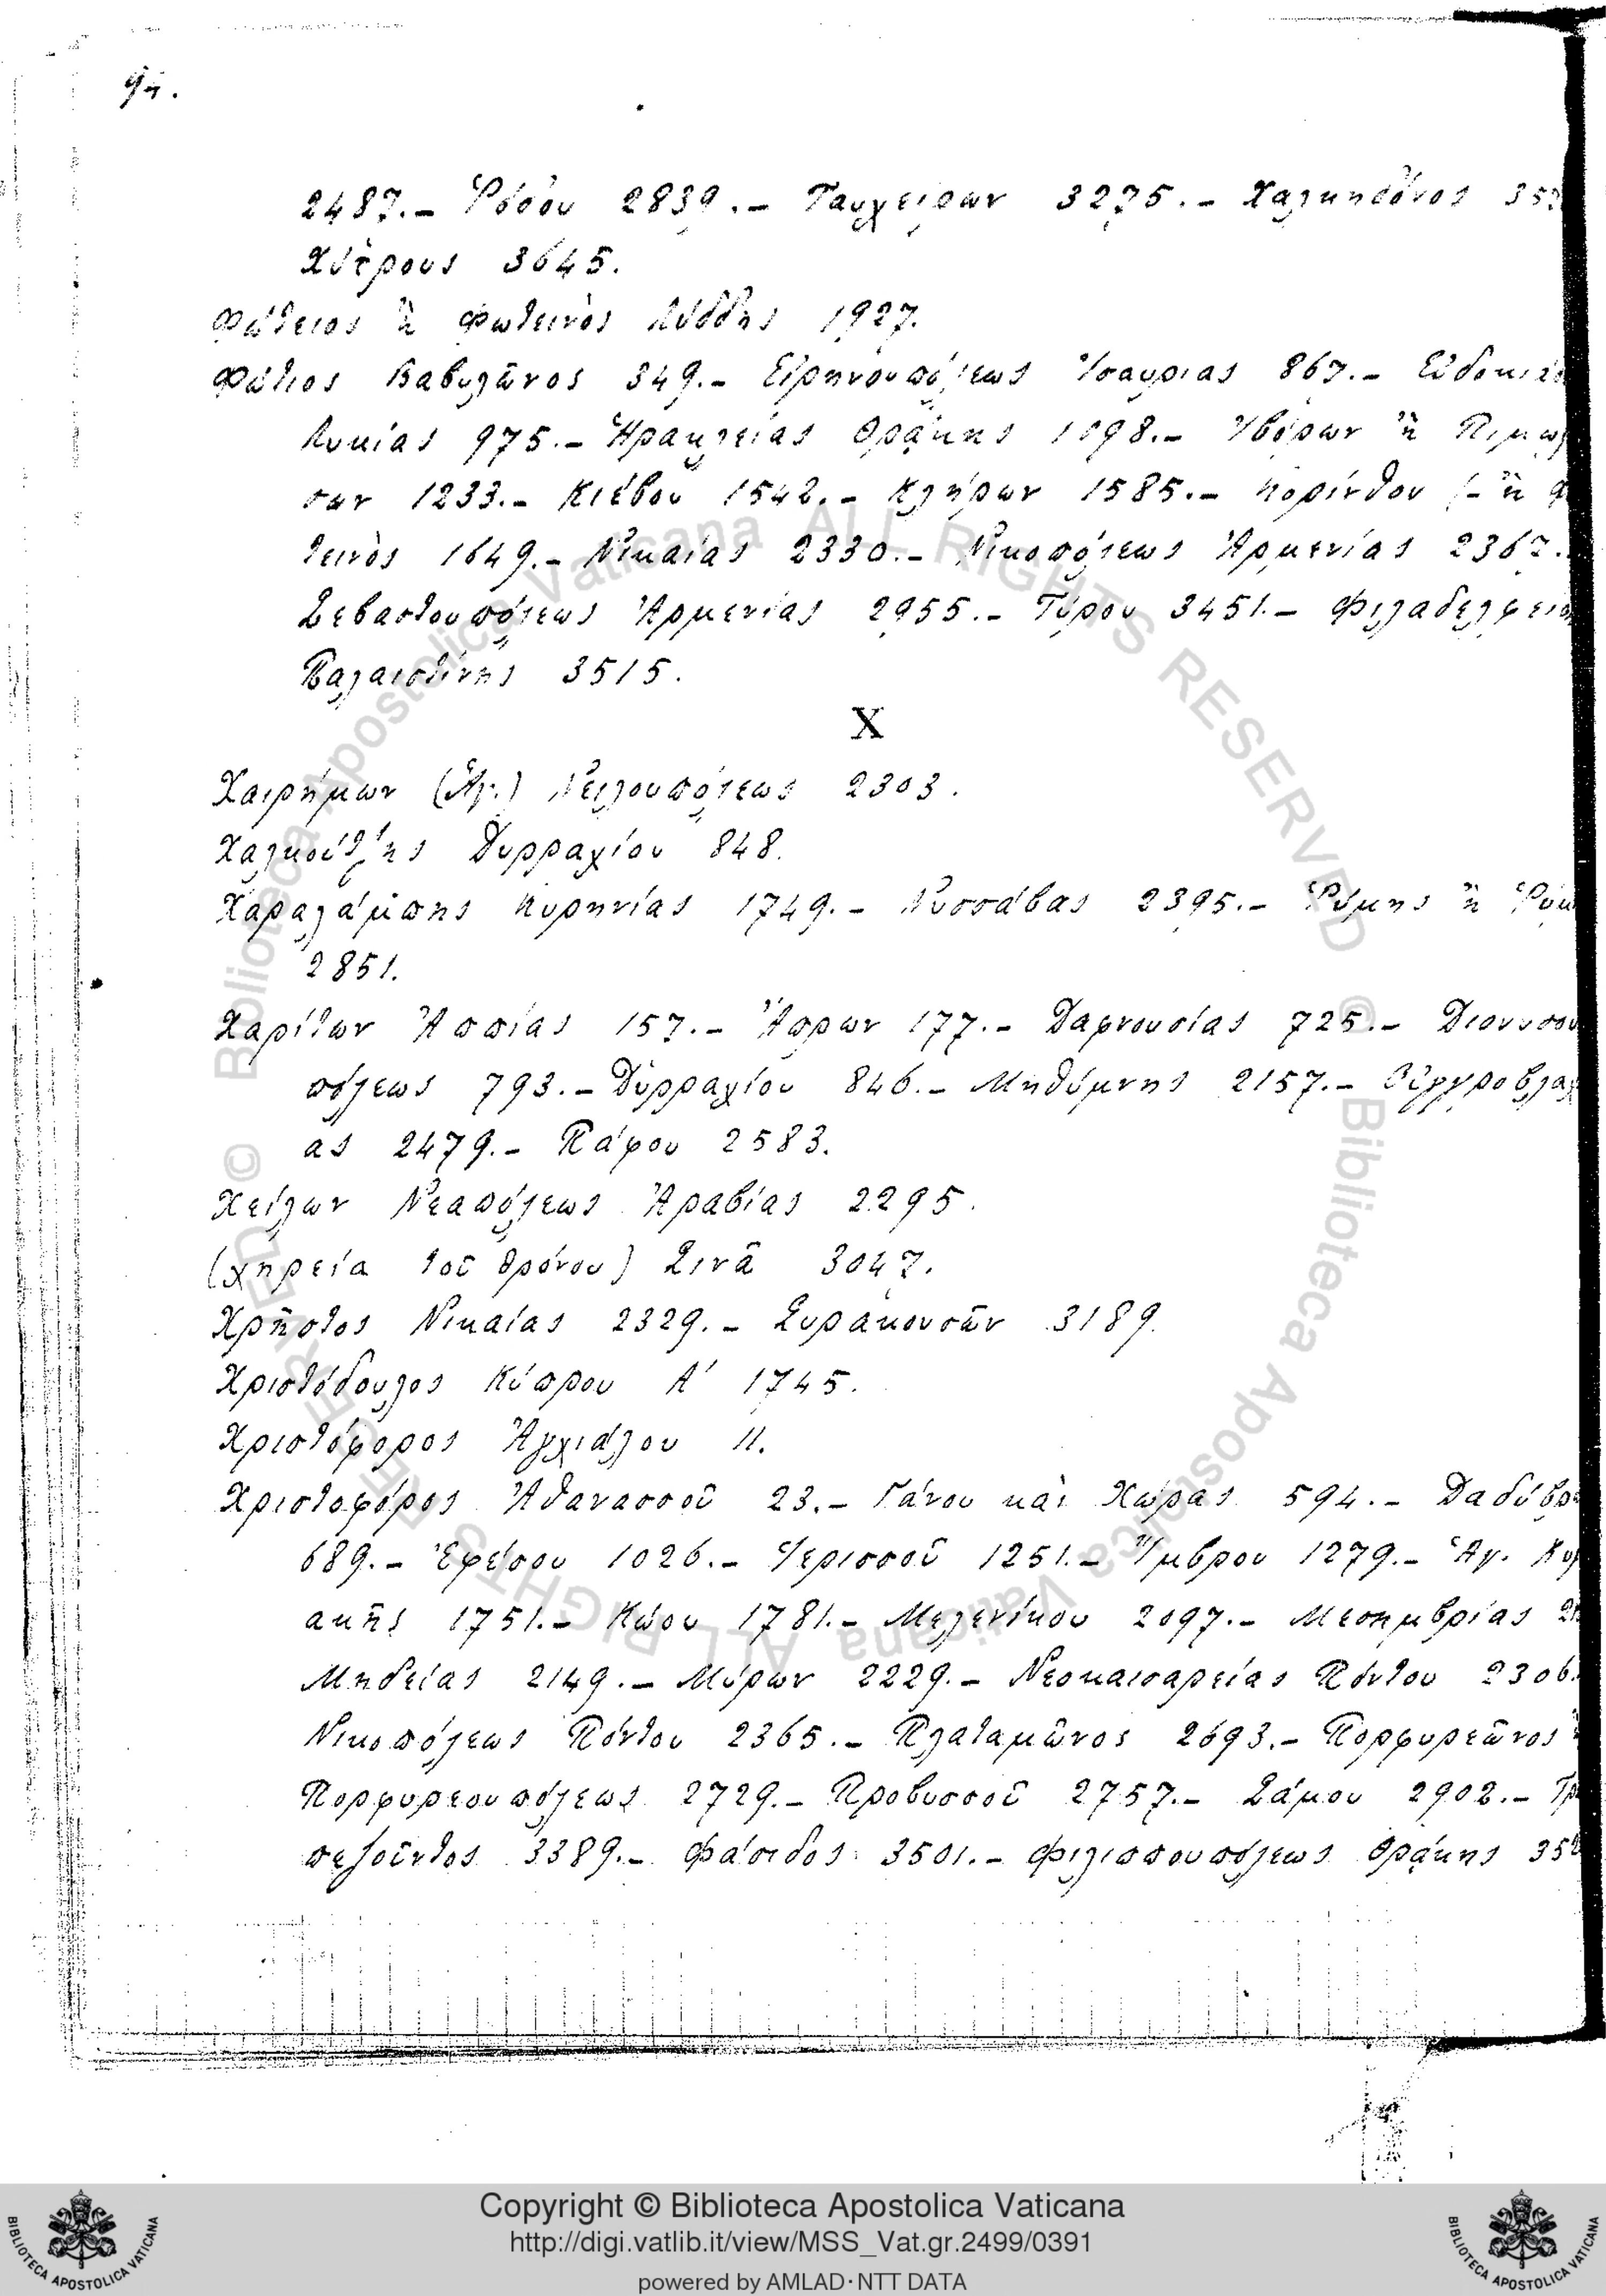 2487.– Ῥόδου 2839.– Ταυχείρων 3275.– Χαλκηδόνος
Χύτρους 3645.
Φώτειος ἢ Φωτεινὸς Λύδδης 1927.
Φώτιος Βαβυλῶνος 349.– Εἰρηνουπόλεως Ἰσαυρίας 867.–
Λυκίας 975.– Ἡρακλείας Θράκης 1098.– Ἰβόρων ἢ
σων 1233.– Κιέβου 1542.– Κλήρων 1585.– Κορίνθου (– ἢ
τεινὸς 1649.– Νικαίας 2330.– Νικοπόλεως Ἀρμενίας 2367.
Σεβαστουπόλεως Ἀρμενίας 2955.– Τύρου 3451.–
Παλαιστίνης 3515.
Χ
Χαιρήμων (Ἅγ.) Νειλουπόλεως 2303.
Χαλκούτζης Δυρραχίου 848.
Χαραλάμπης Κυρηνίας 1749.– Νυσσάβας 2395.– Ῥύμης ἢ
2851.
Χαρίτων Ἀππίας 157.– Ἄπρων 177.– Δαφνουσίας 725.– Διονυσου
πόλεως 793.– Δυρραχίου 846.– Μηθύμνης 2157.–
ας 2479.– Πάφου 2583.
Χείλων Νεαπόλεως Ἀραβίας 2295.
(χηρεία τοῦ θρόνου) Σινᾶ 3047.
Χρῆστος Νικαίας 2329.– Συρακουσῶν 3189.
Χριστόδουλος Κύπρου Α' 1745.
Χριστόφορος Ἀγχιάλου 11.
Χριστοφόρος Ἀθανασσοῦ 23.– Γάνου καὶ Χώρας 594.–
689.– Ἐφέσου 1026.– Ἱερισσοῦ 1251.– Ἴμβρου 1279.– Ἁγ.
ακῆς 1751.– Κώου 1781.– Μελενίκου 2097.– Μεσημβρίας
Μηδείας 2149.– Μύρων 2229.– Νεοκαισαρείας Πόντου 2306.
Νικοπόλεως Πόντου 2365.– Πλαταμῶνος 2693.– Πορφυρεῶνος
Πορφυρεουπόλεως 2729.– Προβυσσοῦ 2757.– Σάμου 2902.–
πεζοῦντος 3389.– Φάσιδος 3501.– Φιλιππουπόλεως Θράκης
Copyright © Biblioteca Apostolica Vaticana
http://digi.vatlib.it/view/MSS_Vat.gr.2499/0391
powered by AMLAD·NTT DATA
BIBLIOTECA APOSTOLICA VATICANA
BIBLIOTECA APOSTOLICA VATICANA